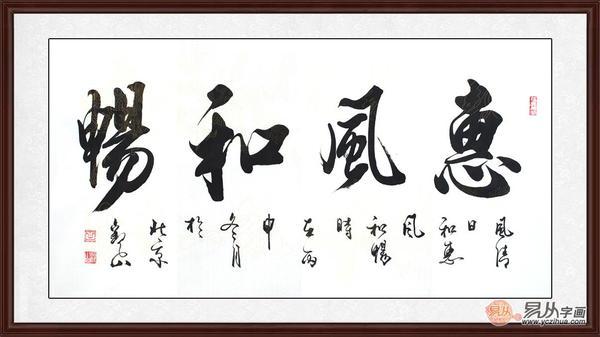 惠風和暢
風清
日
和惠
風
和暢
時
在丙
申
冬月
於
北京
易从字画
www.yczihua.com